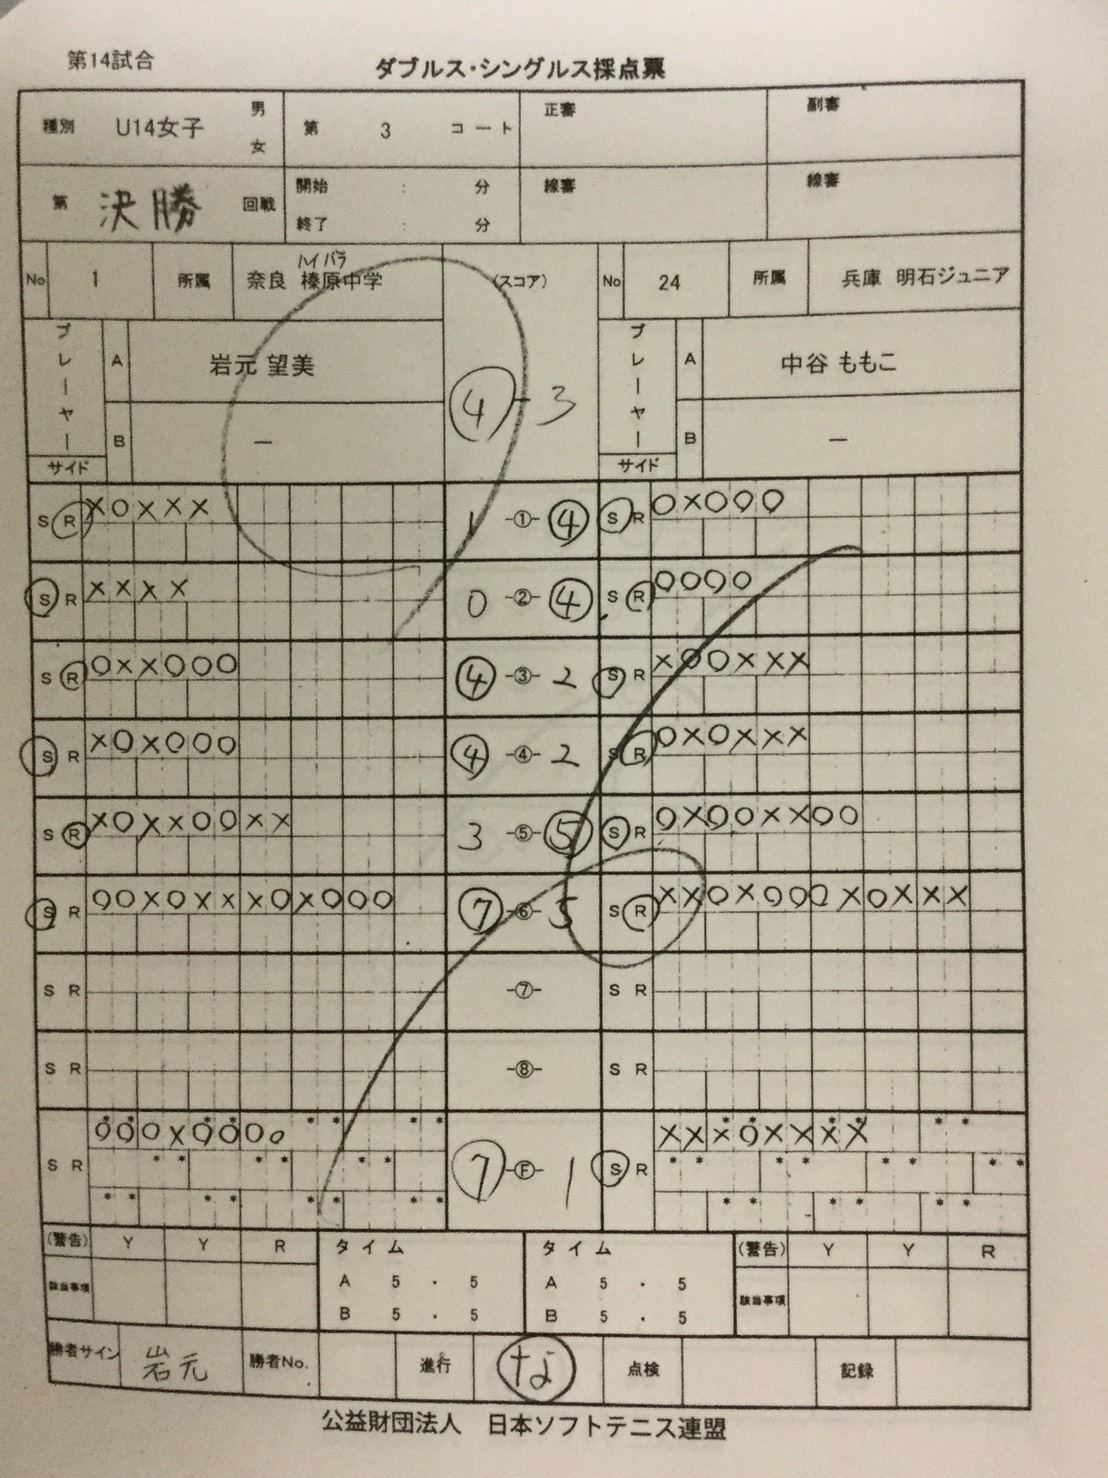 第14試合
ダブルス・シングルス採点票
種別 U14女子 男 女 第 3 コート 正審 副審
第 決勝 回戦 開始 : 分 終了 : 分 線審 線審
ハイバラ
No 1 所属 奈良 榛原中学 (スコア) No 24 所属 兵庫 明石ジュニア
プレーヤー A 岩元 望美 ④-3 プレーヤー A 中谷 ももこ
B — B —
サイド サイド
S R ×○××× 1 -①- ④ S R ○×○○○
S R ×××× 0 -②- ④ S R ○○○○
S R ○××○○○ ④ -③- 2 S R ×○○×××
S R ×○×○○○ ④ -④- 2 S R ○×○×××
S R ×○××○○×× 3 -⑤- ⑤ S R ○×○○××○○
S R ○○×○×××○×○○○ ⑦ -⑥- 5 S R ××○×○○○×○×××
S R -⑦- S R
S R -⑧- S R
S R ○○○×○○○○ ⑦ -Ⓕ- 1 S R ×××○××××
(警告) Y Y R タイム タイム (警告) Y Y R
該当事項 A 5 . 5 A 5 . 5 該当事項
B 5 . 5 B 5 . 5
勝者サイン 岩元 勝者No. 進行 な 点検 記録
公益財団法人 日本ソフトテニス連盟